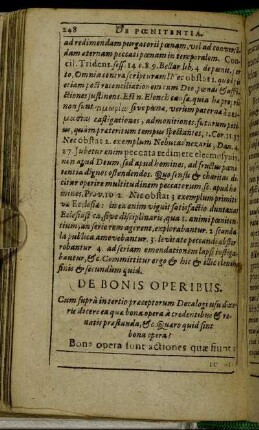 248 DE POENITENTIA.
ad redimendam purgatorii poenam, vel ad converten-
dam aeternam peccati poenam in temporalem. Con-
cil. Trident. sess. 14. c. 8. 9. Bellar lib. 4 de poenit. ser-
to. Omnia contra scripturam. N
etiam post reconciliationem cum Deo poenas & affli-
ctiones sustinent. Est n. Elench.
non sunt sive poenae, verum paterna
castigationes, admonitiones, futurum potiᵒ
us, quam praeteritum tempus spectantes, 1. Cor. 11. 32
Nec obstat 2. exemplum Nebucadnezaris, Dan. 4.
27. Jubetur enim peccata redimere eleemosynis,
non apud Deum, sed apud homines, ad fructus poeni-
tentia dignos ostendendos. Quo sensu & charitas di-
citur operire multitudinem peccatorum sc. apud ho-
mines. Prov. 10 2. Nec obstat 3 exemplum primiti-
va Ecclesia: in ea enim viguit satisfactio duntaxat
Ecclesiastica, sive disciplinaris, qua 1. animi poeniten-
tium, an serio rem agerent, explorabantur. 2 scanda-
la publica amovebantur. 3. levitate peccandi abster-
rebantur 4. ad seriam emendationem lapsi instiga-
bantur, &c. Committitur ergo & hic Elenchus
finis & secundum quid.
DE BONIS OPERIBUS.
Cum suprà in tertio praeceptorum Decalogi usu dixe-
ris dicere ea quae bona opera à credentibus & re-
natis praestanda, &c. Quaero quid sint
bona opera?
Bona opera sunt actiones quae fiunt